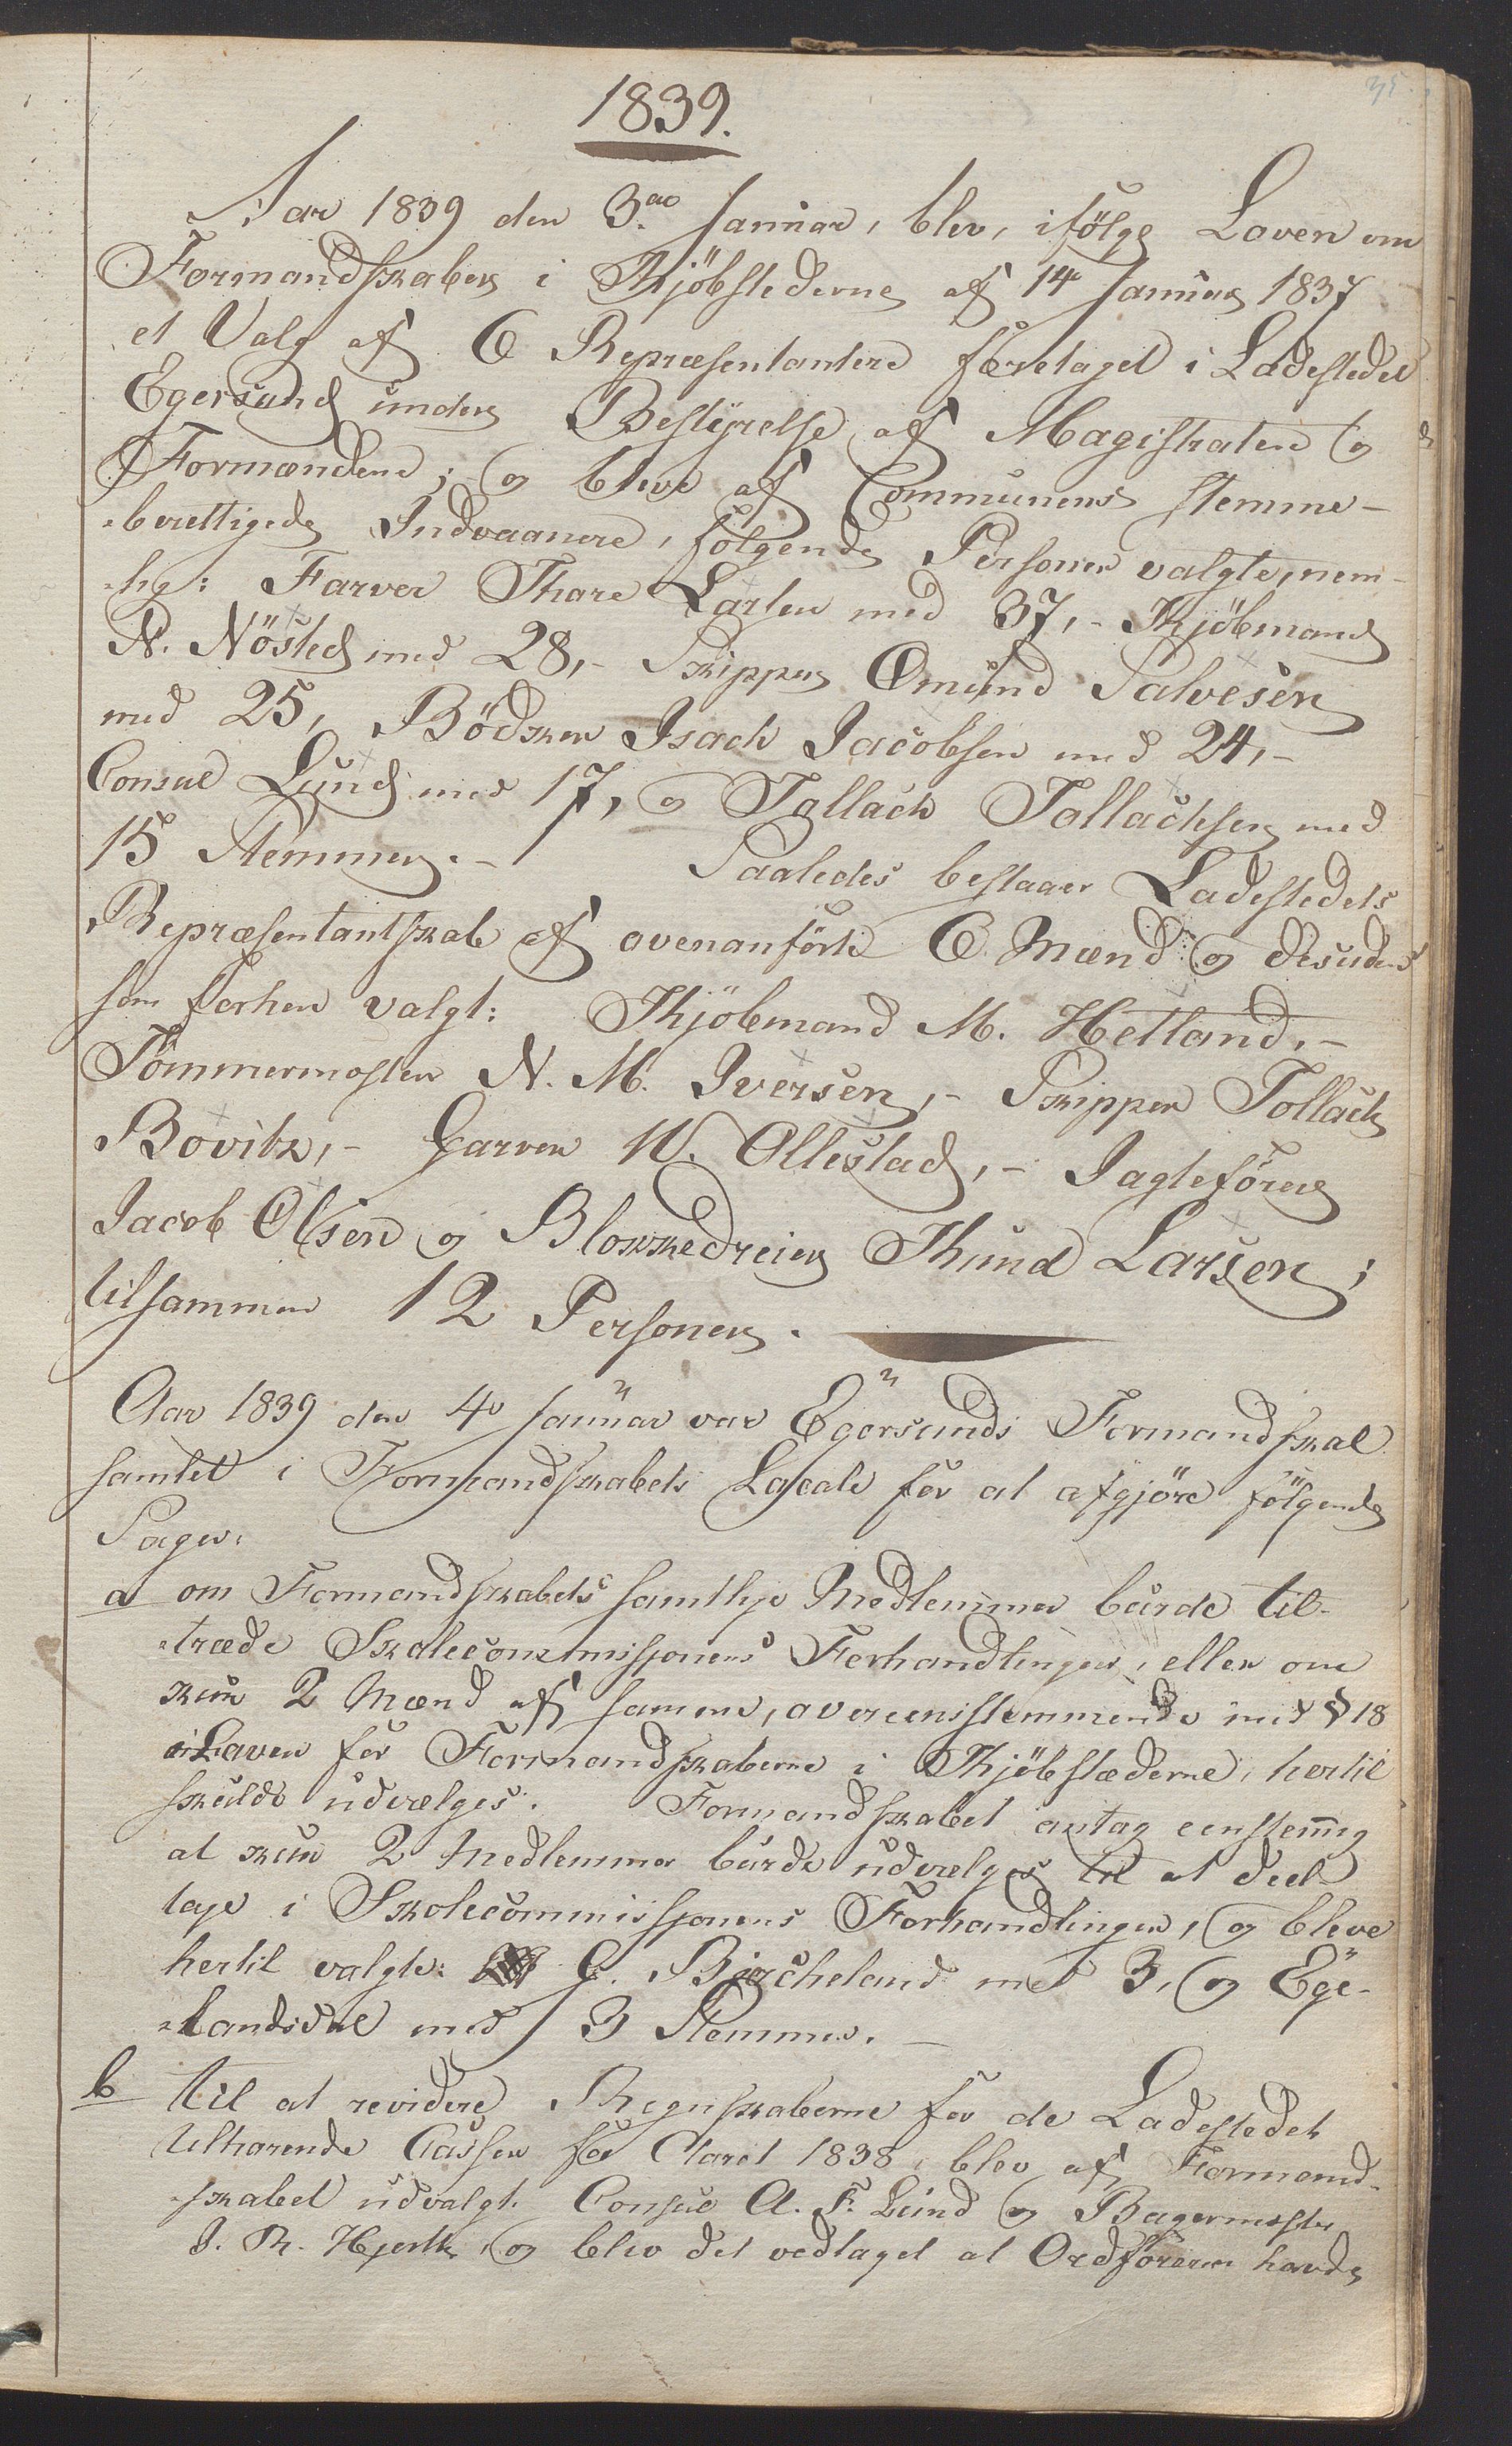 1839.
Aar 1839 den 3die Januar, blev, ifölge Loven om
Formandskaber i Kjöbstederne af 14 Januar 1837
et Valg af 6 Repræsentantere foretaget i Ladestedet
Egersund under Bestyrelse af Magistraten og
Formændene; og bleve af Communens stemme-
-berettigede Indvaanere, følgende Personer valgte, nem-
-lig: Farver Thore Larsen med 37, - Kjöbmand
N. Nösted med 28, - Skipper Omund Salvesen
med 25, Bödker Isach Jacobsen med 24, -
Consul Lund med 17, og Tollach Tollachsen med
15 Stemmer. - Saaledes bestaaer Ladestedets
Repræsentantskab af ovenanförte 6 Mænd og desuden
som forhen valgt: Kjöbmand M. Hetland, -
Tömmermester N. M. Iversen, - Skipper Tollach
Bovitz, - Garver W. Ollestad, - Jagtefører
Jacob Olsen og Blokkedreier Knud Larsen;
tilsammen 12 Personer.
Aar 1839 den 4de Januar var Egersunds Formandskab
samlet i Formandskabets Locale for at afgjöre fölgende
Sager:
a om Formandskabets samtlige Medlemmer burde til-
-træde Skolecommissjonens Forhandlinger, eller om
kun 2 Mænd af samme, overeensstemmende med § 18
i Loven for Formandskaberne i Kjöbstæderne, hertil
skulde udvælges. Formandskabet antog eenstemig
at kun 2 Medlemmer burde udvælges til at deel-
tage i Skolecommissjonens Forhandlinger, og bleve
hertil valgte: G. Bjercheland med 3, og Ege-
-landsdal med 3 Stemmer. -
b til at revidere Regnskaberne for de Ladestedet
tilhørende Casser for Aaret 1838, blev af Formand-
-skabet udvalgt Consul A. F. Lund og Bagermester
J. R. Hjerth, og blev det vedtaget at Ordföreren havde